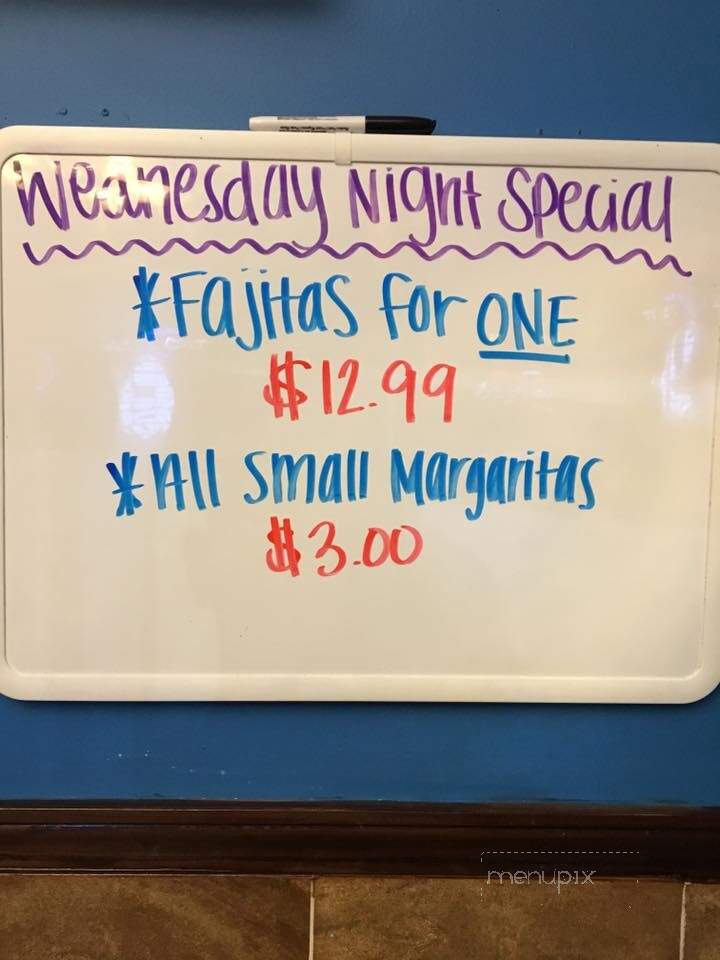 Wednesday Night Special
*Fajitas for ONE
$12.99
*All Small Margaritas
$3.00
menupix